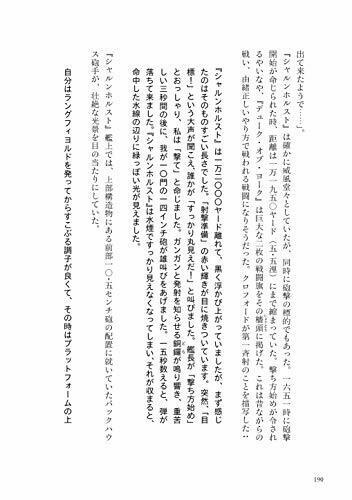 出て来たようで……」。
『シャルンホルスト』は確かに威風堂々としていたが、同時に砲撃の標的でもあった。一六五一時に砲撃
開始が命じられた時、距離は一万一九五〇ヤード（五・五浬）にまで縮まっていた。撃ち方始めが令され
るやいなや、『デューク・オブ・ヨーク』は巨大な二枚の戦闘旗をその檣頭に掲げた。これは昔ながらの
戦い、由緒正しいやり方で戦われる戦闘になりそうだった。クロフォードが第一斉射のことを描写した‥
『シャルンホルスト』は一万二〇〇〇ヤード離れて、黒く浮かび上がっていましたが、まず感じ
たのはそのものすごい長さでした。「射撃準備」の赤い輝きが目に焼きついています。突然、「目
標！」という大声が聞こえ、誰かが「すっかり丸見えだ！」と叫びました。艦長が「撃ち方始め」
とおっしゃり、私は「撃て」と命じました。ガンガンと発射を知らせる銅鑼が鳴り響き、重苦
しい三秒間の後に、我が一〇門の一四インチ砲が雄叫びをあげました。一五秒数えると、弾が
落ちて来ました。『シャルンホルスト』は水煙ですっかり見えなくなってしまい、それが収まると、
命中した水線の辺りに緑っぽい光が見えました。
『シャルンホルスト』艦上では、上部構造物にある前部一〇・五センチ砲の配置に就いていたバックハウ
ス砲手が、壮絶な光景を目の当たりにしていた。
自分はラングフィヨルドを発ってからすこぶる調子が良くて、その時はプラットフォームの上
190